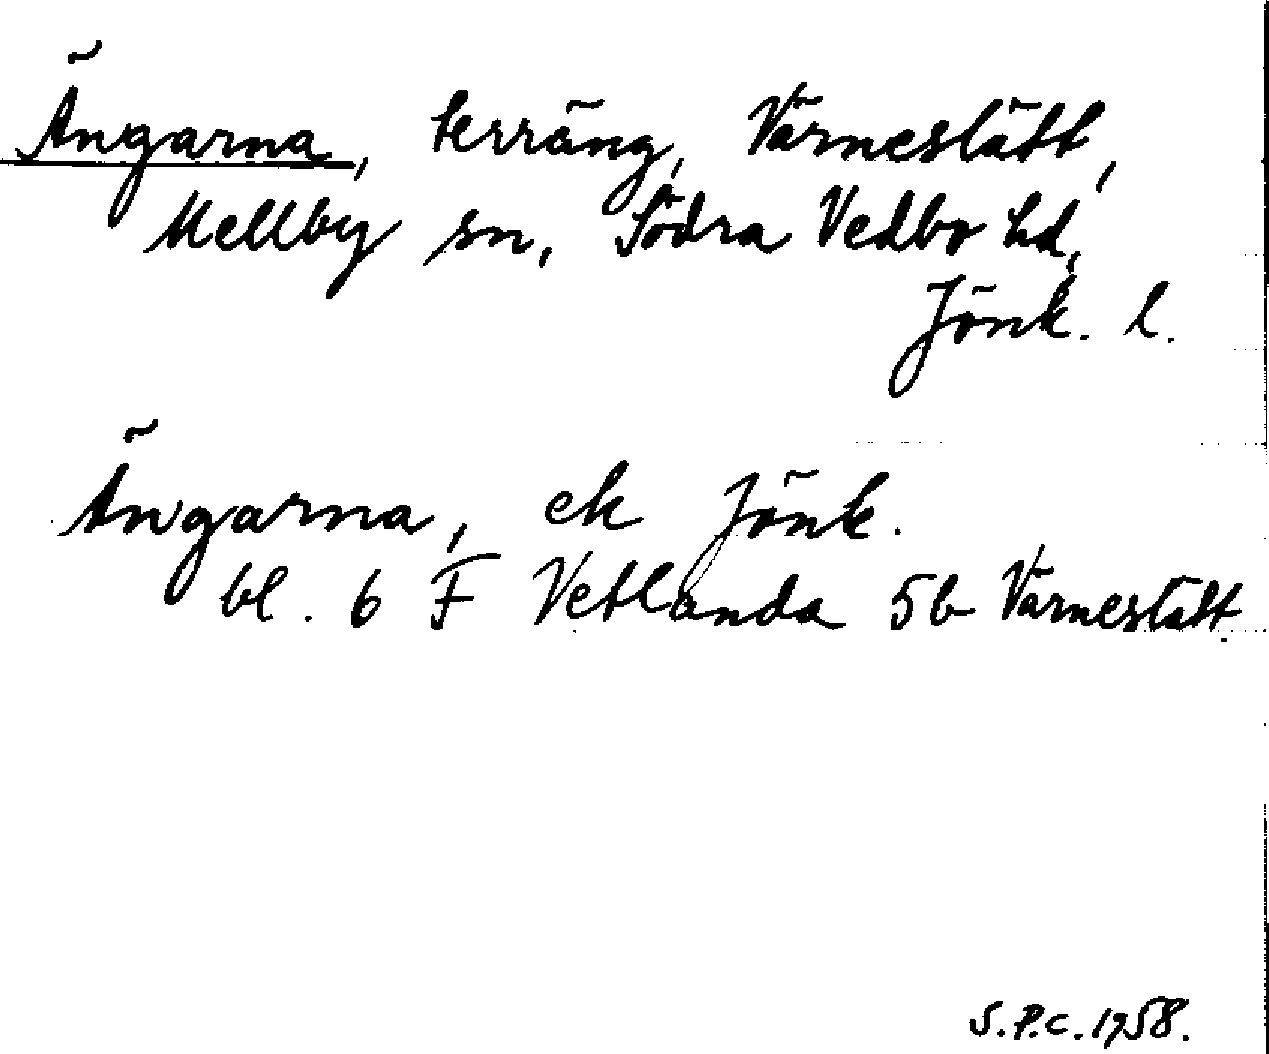 Ängarna, terräng, Värnestätt,
Mellby sn, Södra Vedbo hd,
Jönk. l.
Ängarna, ek Jönk.
bl. 6 F Vetlanda 5b Värnestätt
S.P.C. 1958.